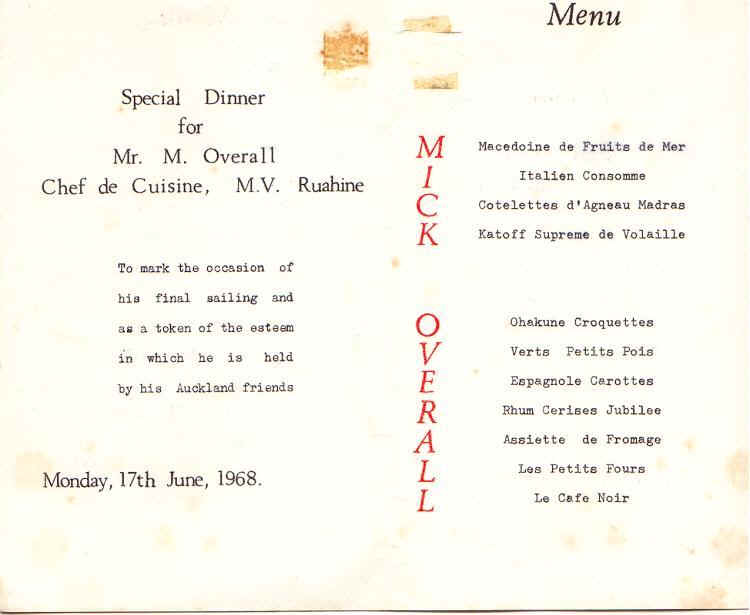 Special Dinner
for
Mr. M. Overall
Chef de Cuisine, M.V. Ruahine
To mark the occasion of
his final sailing and
as a token of the esteem
in which he is held
by his Auckland friends
Monday, 17th June, 1968.
Menu
M Macedoine de Fruits de Mer
I Italien Consomme
C Cotelettes d'Agneau Madras
K Katoff Supreme de Volaille
O Ohakune Croquettes
V Verts Petits Pois
E Espagnole Carottes
R Rhum Cerises Jubilee
A Assiette de Fromage
L Les Petits Fours
L Le Cafe Noir